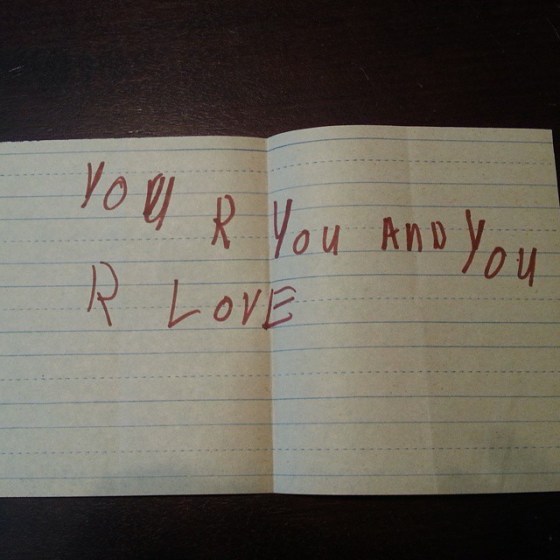 YOU R YOU AND YOU
R LOVE